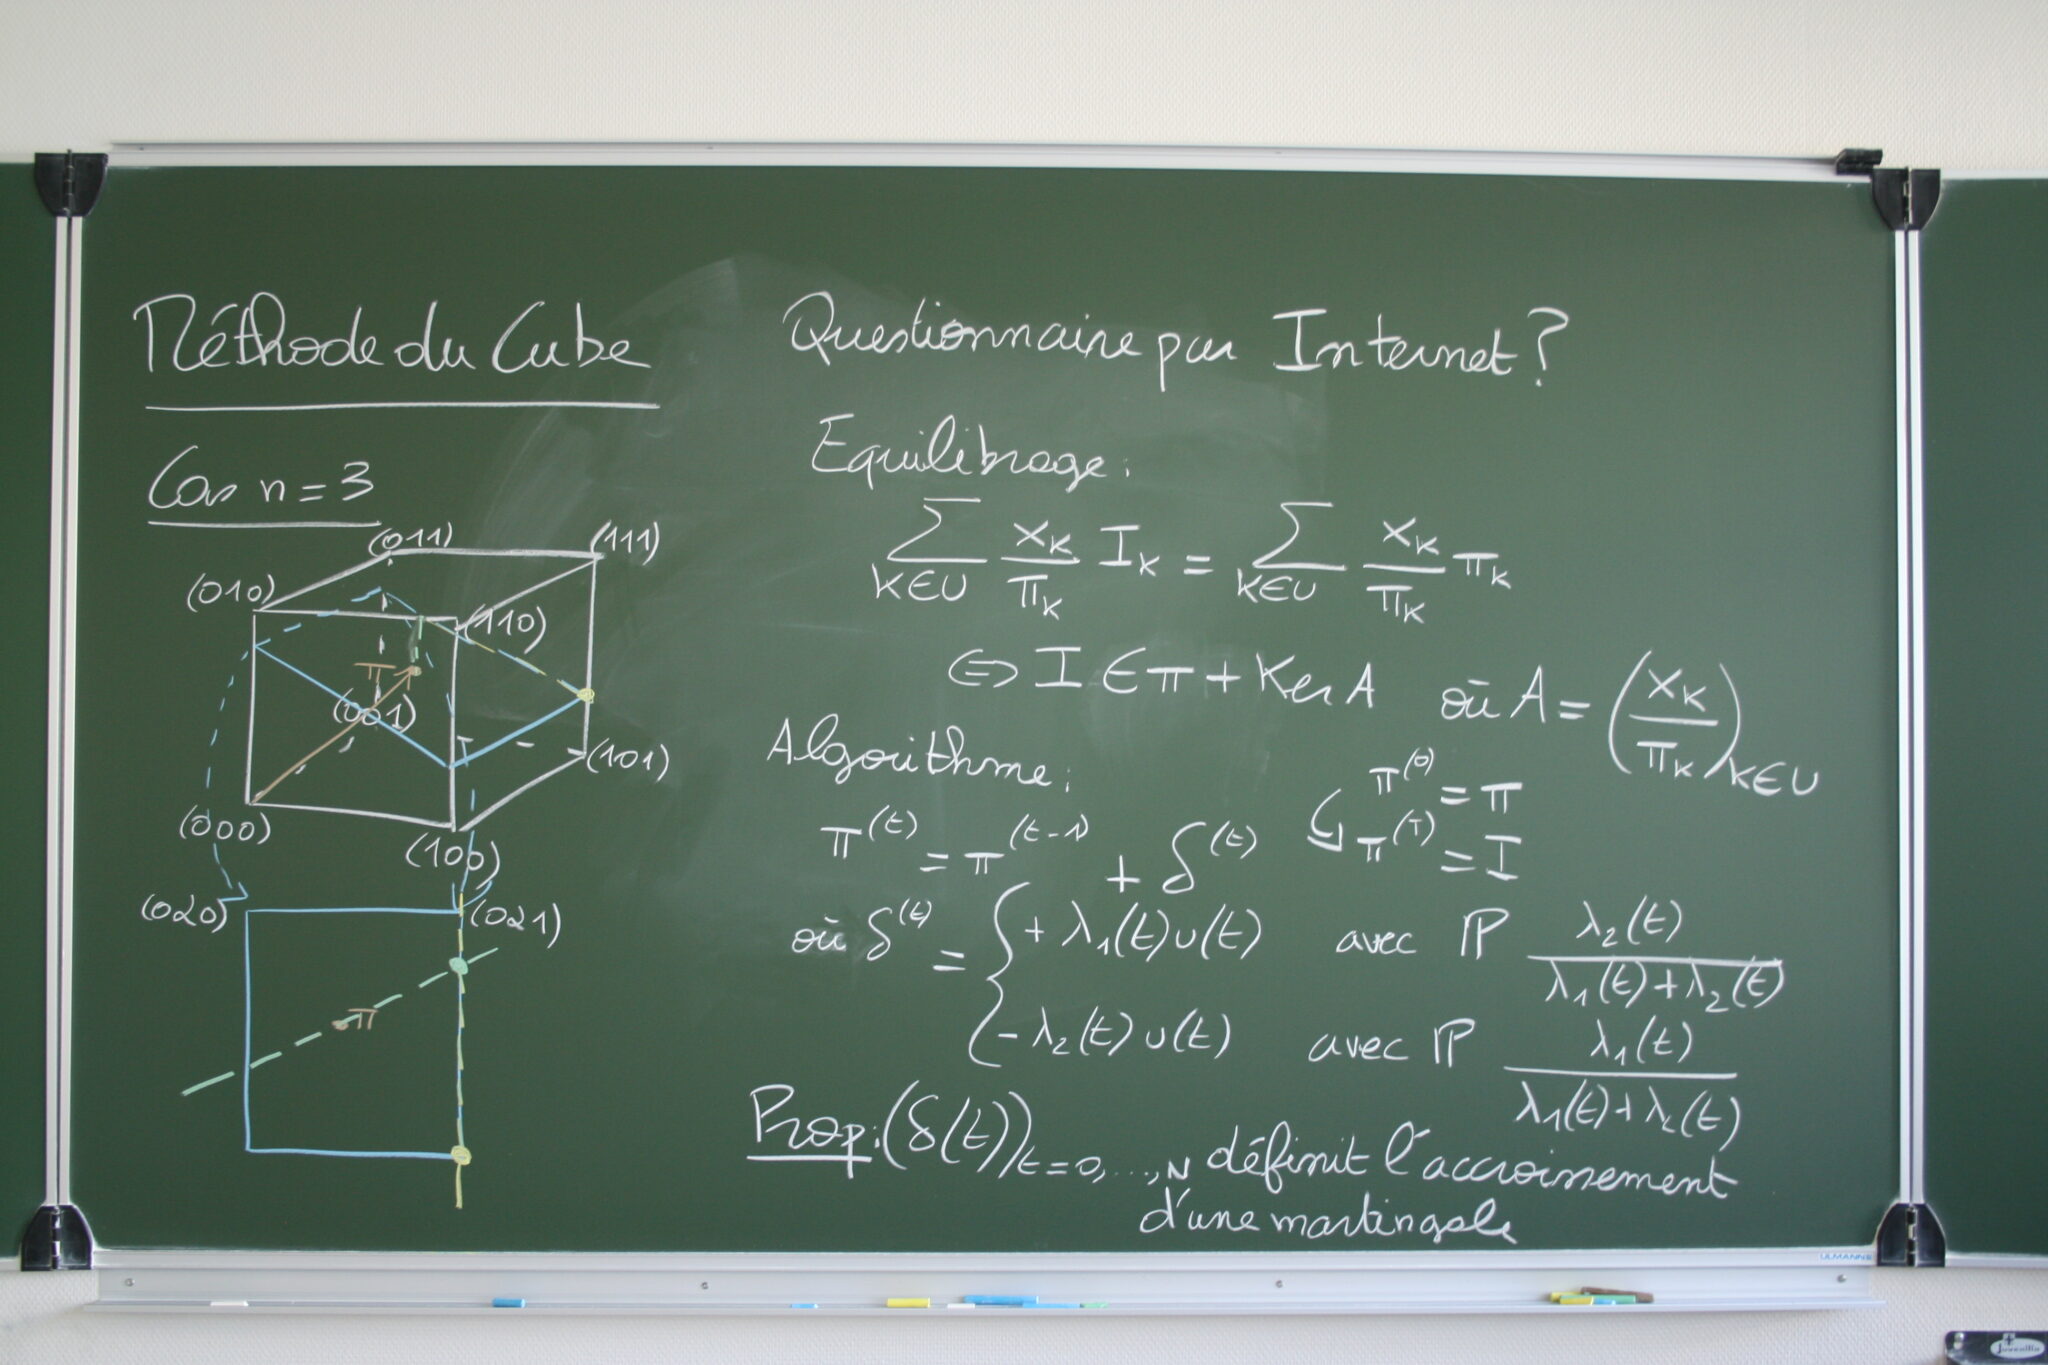 Méthode du Cube
Cas n = 3
(011)
(111)
(010)
(110)
π
(001)
(101)
(000)
(100)
(0α0)
(0α1)
π
Questionnaire par Internet ?
Equilibrage :
∑_{k∈U} x_k/π_k I_k = ∑_{k∈U} x_k/π_k π_k
⇔ I ∈ π + Ker A où A = (x_k/π_k)_{k∈U}
Algorithme :
π^(0) = π
π^(t) = π^(t-1) + δ^(t)
π^(T) = I
où δ^(t) = { + λ₁(t) u(t) avec ℙ λ₂(t)/(λ₁(t)+λ₂(t))
- λ₂(t) u(t) avec ℙ λ₁(t)/(λ₁(t)+λ₂(t))
Prop : (δ(t))_{t=0,...,N} définit l'accroissement
d'une martingale
ULMANN
Juvenilia